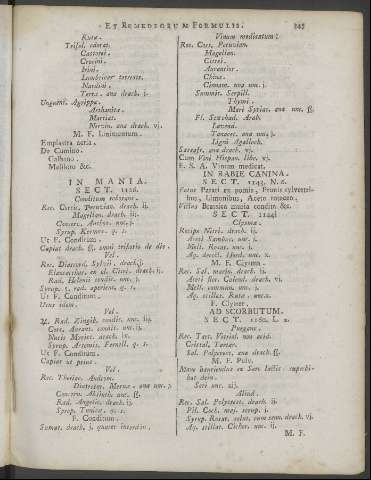 ET REMEDIORUM FORMULIS. 245
Rutæ.
Trifol. odorat.
Castorei.
Crocini.
Irini.
Lumbricor terrestr.
Nardini.
Terra. ana drach. j.
Unguent. Agrippæ.
Arthanitæ.
Martiat.
Nervin. ana drach. vj.
M. F. Linimentum.
Emplastra
De Cumino.
Galbano.
Meliloto &c.
IN MANIA.
SECT. 1126.
Conditum roborans.
Rec. Cortic. Peruviani drach. iij.
Magellan. drach. iij.
Conserv. Anthos. unc. j.
Syrup. Kermes. q. s.
Ut F. Conditum.
Capiat drach. ß. omni trihorio de die.
Vel.
Rec. Diascord. Sylvii. drach.
Electuar. drach. ij.
Rad. Helenii condit. unc. j.
Syrup. v. rad. aperient. q. s.
Ut F. Conditum.
Usus idem.
Vel.
Rad. Zingib. condit. unc. iiij.
Cort. Aurant. condit. unc. ij.
Nucis Moriat. drach. iv.
Syrup. Artemis. Fernel. q. s.
Ut F. Conditum.
Capiat ut prius.
Vel.
Rec. Theriac. Androm.
ana unc. j.
Conserv. Absinth. unc. ß.
Rad. Angelic. drach. ij.
Syrup. q. s.
F. Conditum.
Sumat. drach. j. quater interdiu.
Vinum medicatum:
Rec. Cort. Peruvian.
Magellan.
Citrei.
Aurantior.
Chinæ.
Cinnam. ana unc. j.
Summit. Serpill.
Thymi.
Mari Syriac. ana unc. ß.
Fl. Stœchad. Arab.
Lavend.
Tanacet. ana unc. j.
Ligni Agalloch.
Sassafr. ana drach. vj.
Cum Vini Hispan. libr. vj.
F. S. A. Vinum medicat.
IN RABIE CANINA.
SECT. 1143. N. 2.
Potus Parari ex pomis, Prunis sylvestribus,
Limonibus, Aceto rosaceo,
Victus Brassica condita &c.
SECT. 1144.
Clysma.
Recipe Nitri. drach. ij.
Aceti Sambuc. unc. j.
Mell. Rosat. unc. j.
Ag. decoct. Hord. unc. x.
M. F. Clysma.
Rec. Sal. marin. drach. ij.
Aceti flor. Calend. drach. vj.
Mell. commun. unc. j.
Aq. stillat. Rutæ. unc. x.
F. Clyster.
AD SCORBUTUM.
SECT. 1160. L. 2.
Purgans.
Rec. Tart. Vitriol. non acid.
Cristal. Tartar.
Sal. Polychrest. ana drach. ß.
M. F. Pulv.
Mane hauriendus ex Seri lactis
Seri unc. xij.
Aliud.
Rec. Sal. Polychrest. drach. ij.
Pil. Coch. maj. scrup. j.
Syrup. Rosar. solut. cum senn. drach. vj.
Aq. stillat. Cichor. unc. ij.
M. F.